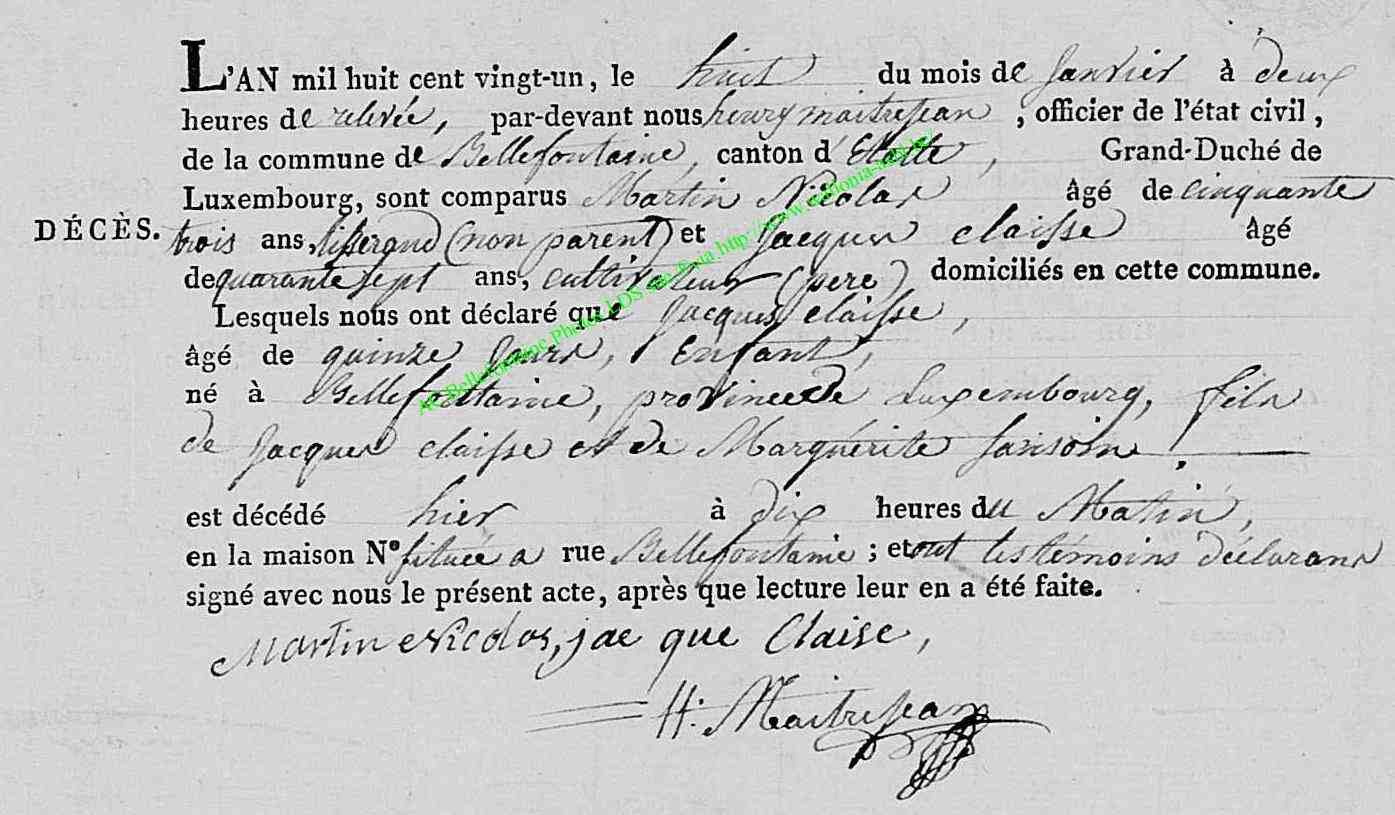 L'AN mil huit cent vingt-un, le huit du mois de Janvier à deux
heures de relevée, par-devant nous henry maitrejean, officier de l'état civil,
de la commune de Bellefontaine, canton d'Etalle, Grand-Duché de
Luxembourg, sont comparus Martin Nicolas âgé de cinquante
DÉCÈS.
trois ans, tisserand (non parent) et Jacques claisse âgé
de quarante sept ans, cultivateur (pere) domiciliés en cette commune.
Lesquels nous ont déclaré que Jacques claisse,
âgé de quinze Jours, Enfant,
né à Bellefontaine, province de Luxembourg, fils
de Jacques claisse et de Marguérite Sansoin.
est décédé hier à dix heures du Matin,
en la maison N° située a rue Bellefontaine ; et ont les témoins déclarans
signé avec nous le présent acte, après que lecture leur en a été faite.
Martin Nicolas, jac que Claise,
H: Maitrejean